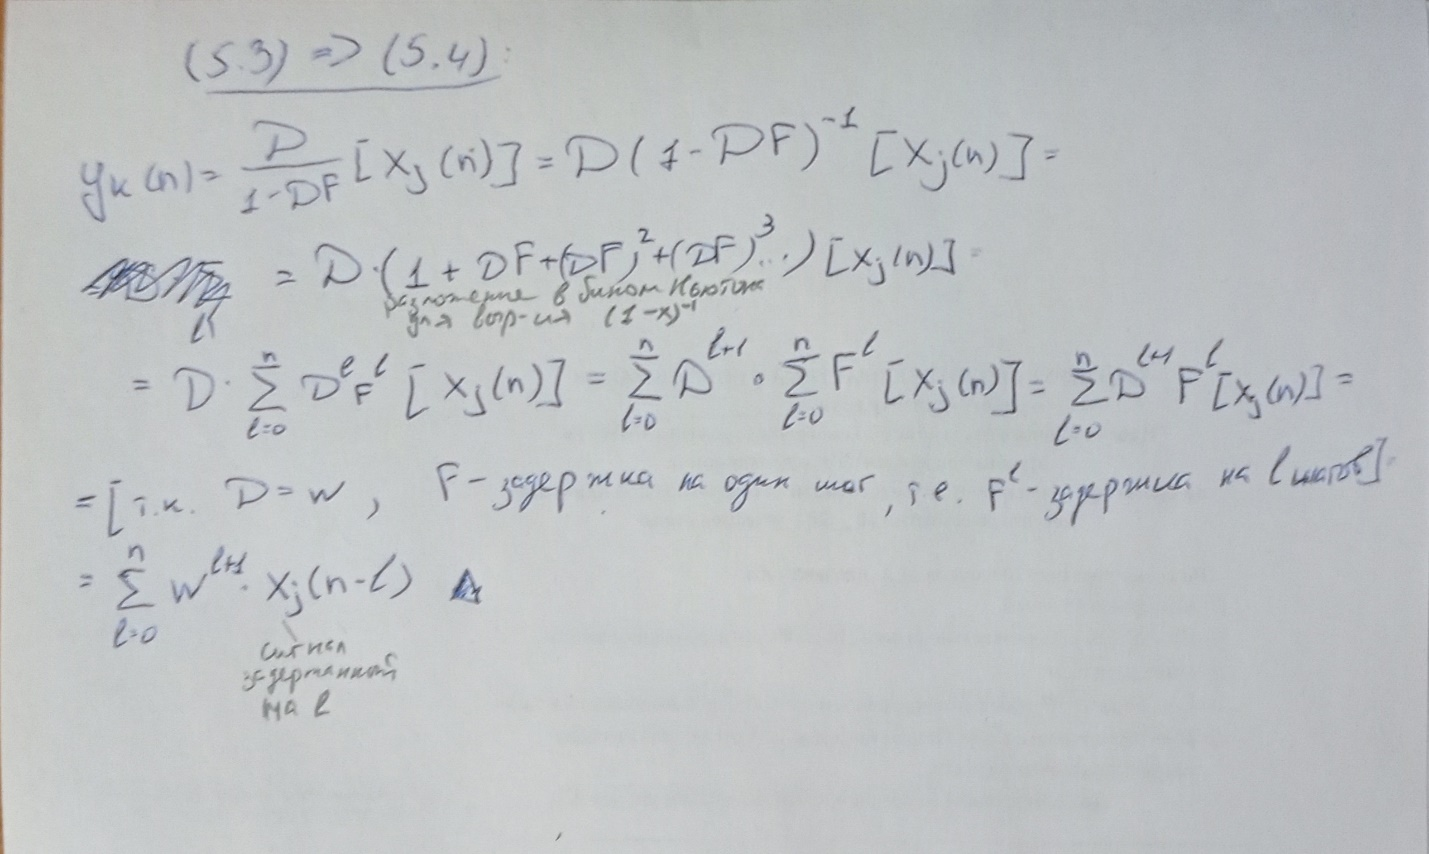 (5.3) => (5.4):
yₖ(n) = D/(1-DF) [xⱼ(n)] = D(1-DF)⁻¹ [xⱼ(n)] =
= D·(1 + DF+(DF)²+(DF)³...) [xⱼ(n)] =
разложение в бином Ньютона
для выр-ия (1-x)⁻¹
= D · Σₗ₌₀ⁿ Dˡ Fˡ [xⱼ(n)] = Σₗ₌₀ⁿ Dˡ⁺¹ · Σₗ₌₀ⁿ Fˡ [xⱼ(n)] = Σₗ₌₀ⁿ Dˡ⁺¹ Fˡ [xⱼ(n)] =
= [т.к. D=w, F-задержка на один шаг, т.е. Fˡ-задержка на l шагов] =
= Σₗ₌₀ⁿ wˡ⁺¹ · xⱼ(n-l) ▲
сигнал
задержанный
на l